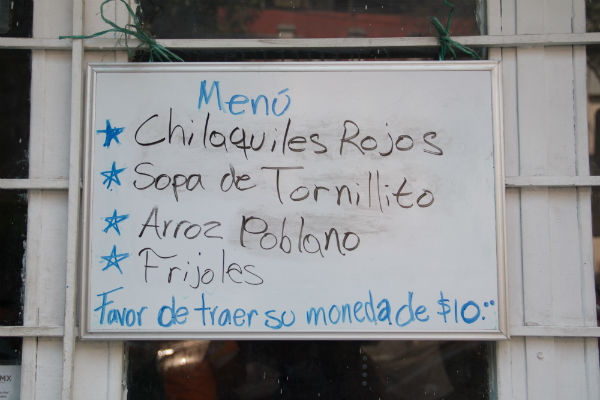 Menú
Chilaquiles Rojos
Sopa de Tornillito
Arroz Poblano
Frijoles
Favor de traer su moneda de $10.00
MX